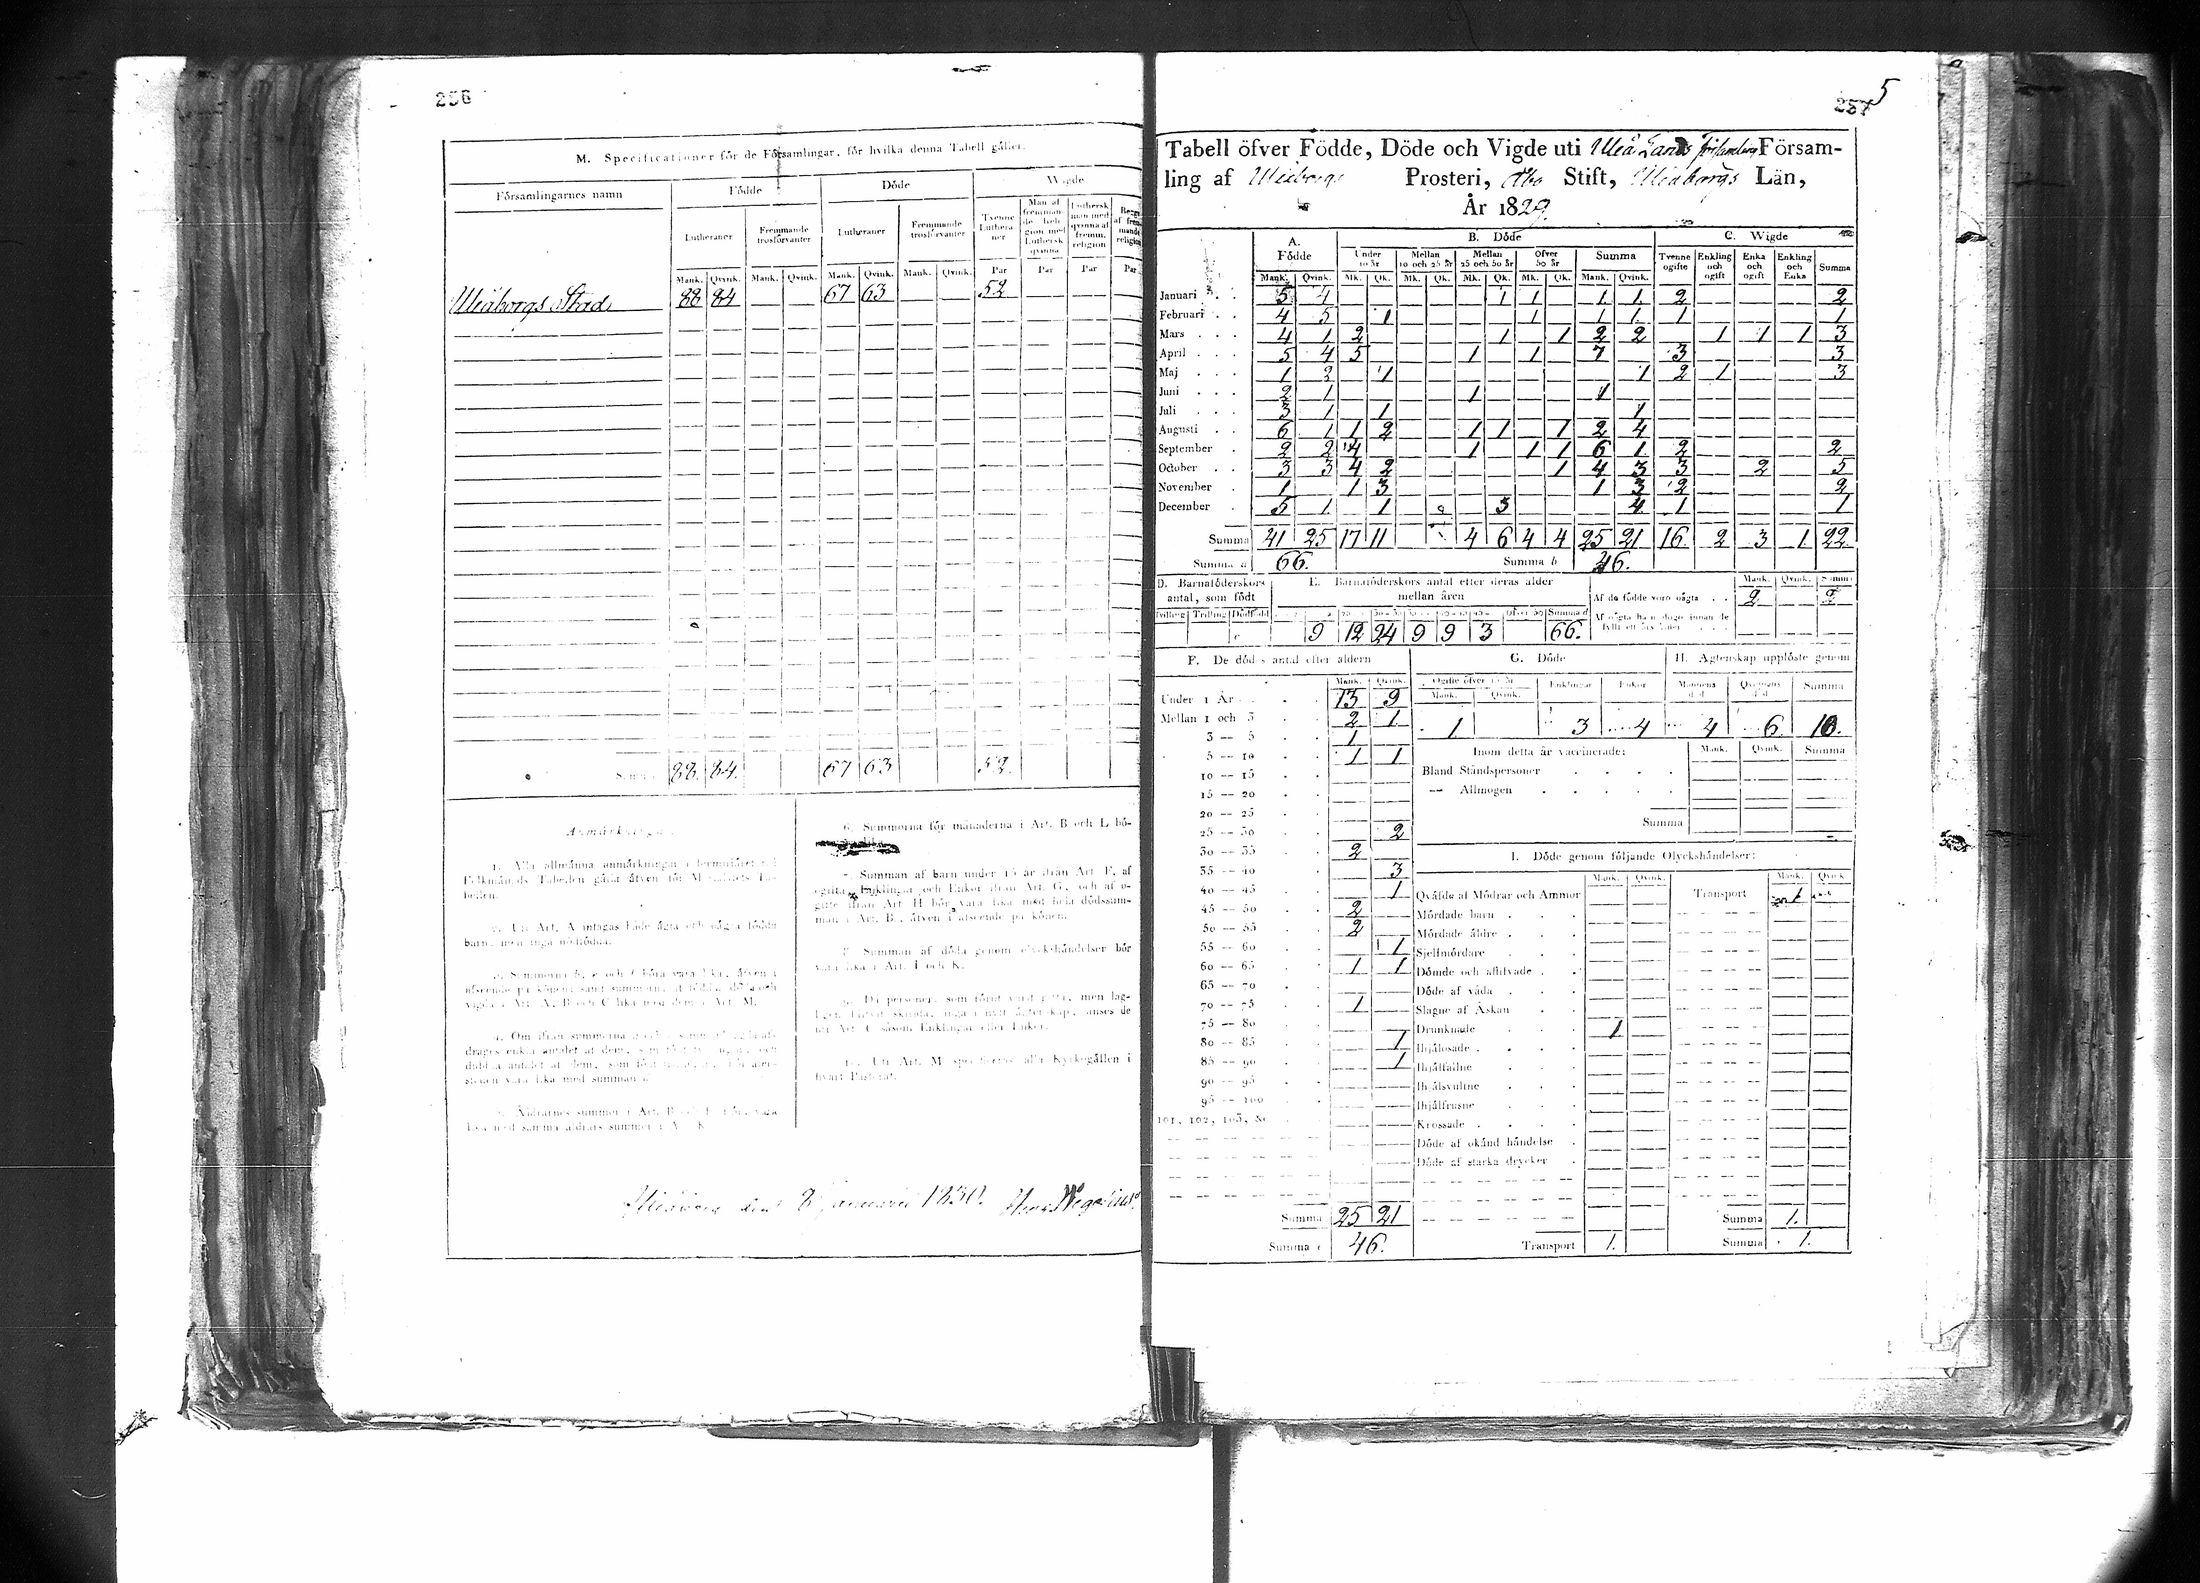 256
M. Specificationer för de Församlingar, för hvilka denna Tabell gäller.
Församlingarnes namn Födde Döde Wigde
Lutheraner Fremmande trosförvanter Lutheraner Fremmande trosförvanter Tvenne Luthera-ner Man af fremman-de reli-gion med Luthersk qvinna Luthersk man med qvinna af fremm. religion
Mank. Qvink. Mank. Qvink. Mank. Qvink. Mank. Qvink. Par Par Par Par
Uleåborgs Stad 88 84 67 63 52
Summa 88. 84. 67 63 52.
Anmärkningar.
1. Alla allmänna anmärkningar i formuläret till
Folkmängds Tabellen gälla äfven för
2. Uti Art. A intagas både ägta och oägta födda
barn, men inga dödfödda.
3. Summorna b, e och f böra vara lika, äfven i
afseende på könen; samt summorna af födda, döda och
vigda i Art. A, B och C lika med dem i Art. M.
4. Om ifrån summorna
drages enkla antalet af dem, som och
dubbla antalet af dem, som
vara lika med summan
5. Åldrarnes summor i Art. B och F böra vara
lika med samma åldrars summor i Art. K.
6. Summorna för månaderna i Art. B och L bö-
7. Summan af barn under 15 år ifrån Art. F, af
ogifta, Enklingar och Enkor ifrån Art. G, och af
gifte ifrån Art. H bör vara lika med hela dödssum-
man i Art. B., äfven i afseende på könen.
8. Summan af döda genom olyckshändelser bör
vara lika i Art. I och K.
9. De personer, som förut varit gifta, men lag-
ligen blifvit skilda, ingå i nytt ägtenskap, anses de
uti Art. C såsom Enklingar eller Enkor.
10. Uti Art. M specificeras alla Kyrkogällen i
hvart Pastorat.
Uleåborg den 8 Januarii 1830.
5
257
Tabell öfver Födde, Döde och Vigde uti Uleå Lands församling Försam-
ling af Uleåborgs Prosteri, Åbo Stift, Uleåborgs Län,
År 1829.
A. Födde B. Döde C. Wigde
Under 10 år Mellan 10 och 25 år Mellan 25 och 50 år Öfver 50 år Summa Tvenne ogifte Enkling och ogift Enka och ogift Enkling och Enka Summa
Mank. Qvink. Mk. Qk. Mk. Qk. Mk. Qk. Mk. Qk. Mank. Qvink.
Januari 5 4 1 1 1 1 2 2
Februari 4 5 1 1 1 1 1 1
Mars 4 1 2 1 1 2 2 1 1 1 3
April 5 4 5 1 1 7 3 3
Maj 1 2 1 1 2 1 3
Juni 2 1 1 1
Juli 3 1 1 1
Augusti 6 1 1 2 1 1 1 2 4
September 2 2 4 1 1 1 6 1 2 2
October 3 3 4 2 1 4 3 3 2 5
November 1 1 3 1 3 2 2
December 5 1 1 3 4 1 1
Summa 41 25 17 11 4 6 4 4 25 21 16 2 3 1 22
Summa a 66. Summa b 46.
D. Barnaföderskors antal, som födt
Tvilling Trilling Dödfödd
E. Barnaföderskors antal efter deras ålder
mellan åren
Öfver 50 Summa d
9 12 24 9 9 3 66.
Mank. Qvink. Summa
Af de födde voro oägta 2 2
Af oägta barn dogo innan de
fyllt ett års ålder
F. De dödas antal efter åldern
Mank. Qvink.
Under 1 År 13 9
Mellan 1 och 3 2 1
3 — 5 1
5 — 10 1 1
10 — 15
15 — 20
20 — 25
25 — 30 2
30 — 35 2
35 — 40 3
40 — 45 1
45 — 50 2
50 — 55 2
55 — 60 1
60 — 65 1 1
65 — 70
70 — 75 1
75 — 80
80 — 85 1
85 — 90 1
90 — 95
95 — 100
101, 102, 103, &c
Summa 25 21
Summa e 46.
G. Döde
Ogifte öfver 15 år Enklingar Enkor
Mank. Qvink.
1 3 4
H. Ägtenskap upplöste genom
Mannens död Qvinnans död Summa
4 6 10.
Inom detta år vaccinerade: Mank. Qvink. Summa
Bland Ståndspersoner
— Allmogen
Summa
I. Döde genom följande Olyckshändelser:
Mank. Qvink. Mank. Qvink.
Qväfde af Mödrar och Ammor Transport
Mördade barn
Mördade äldre
Sjelfmördare
Dömde och aflifvade
Döde af våda
Slagne af Åskan
Drunknade 1
Ihjälosade
Ihjälfallne
Ihjälsvultne
Ihjälfrusne
Krossade
Döde af okänd händelse
Döde af starka drycker
Summa 1.
Transport 1. Summa 1.